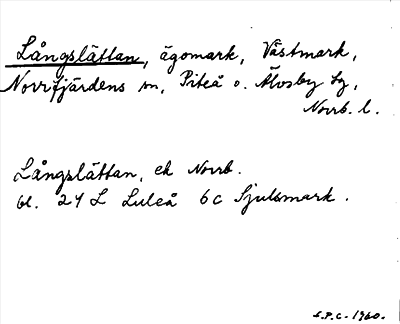 Långslättan, ägomark, Västmark,
Norrfjärdens sn, Piteå o. Älvsby tg,
Norrb. l.
Långslättan, ek Norrb.
bl. 24 L Luleå 6 c Sjulsmark.
S.P.C. 1960.